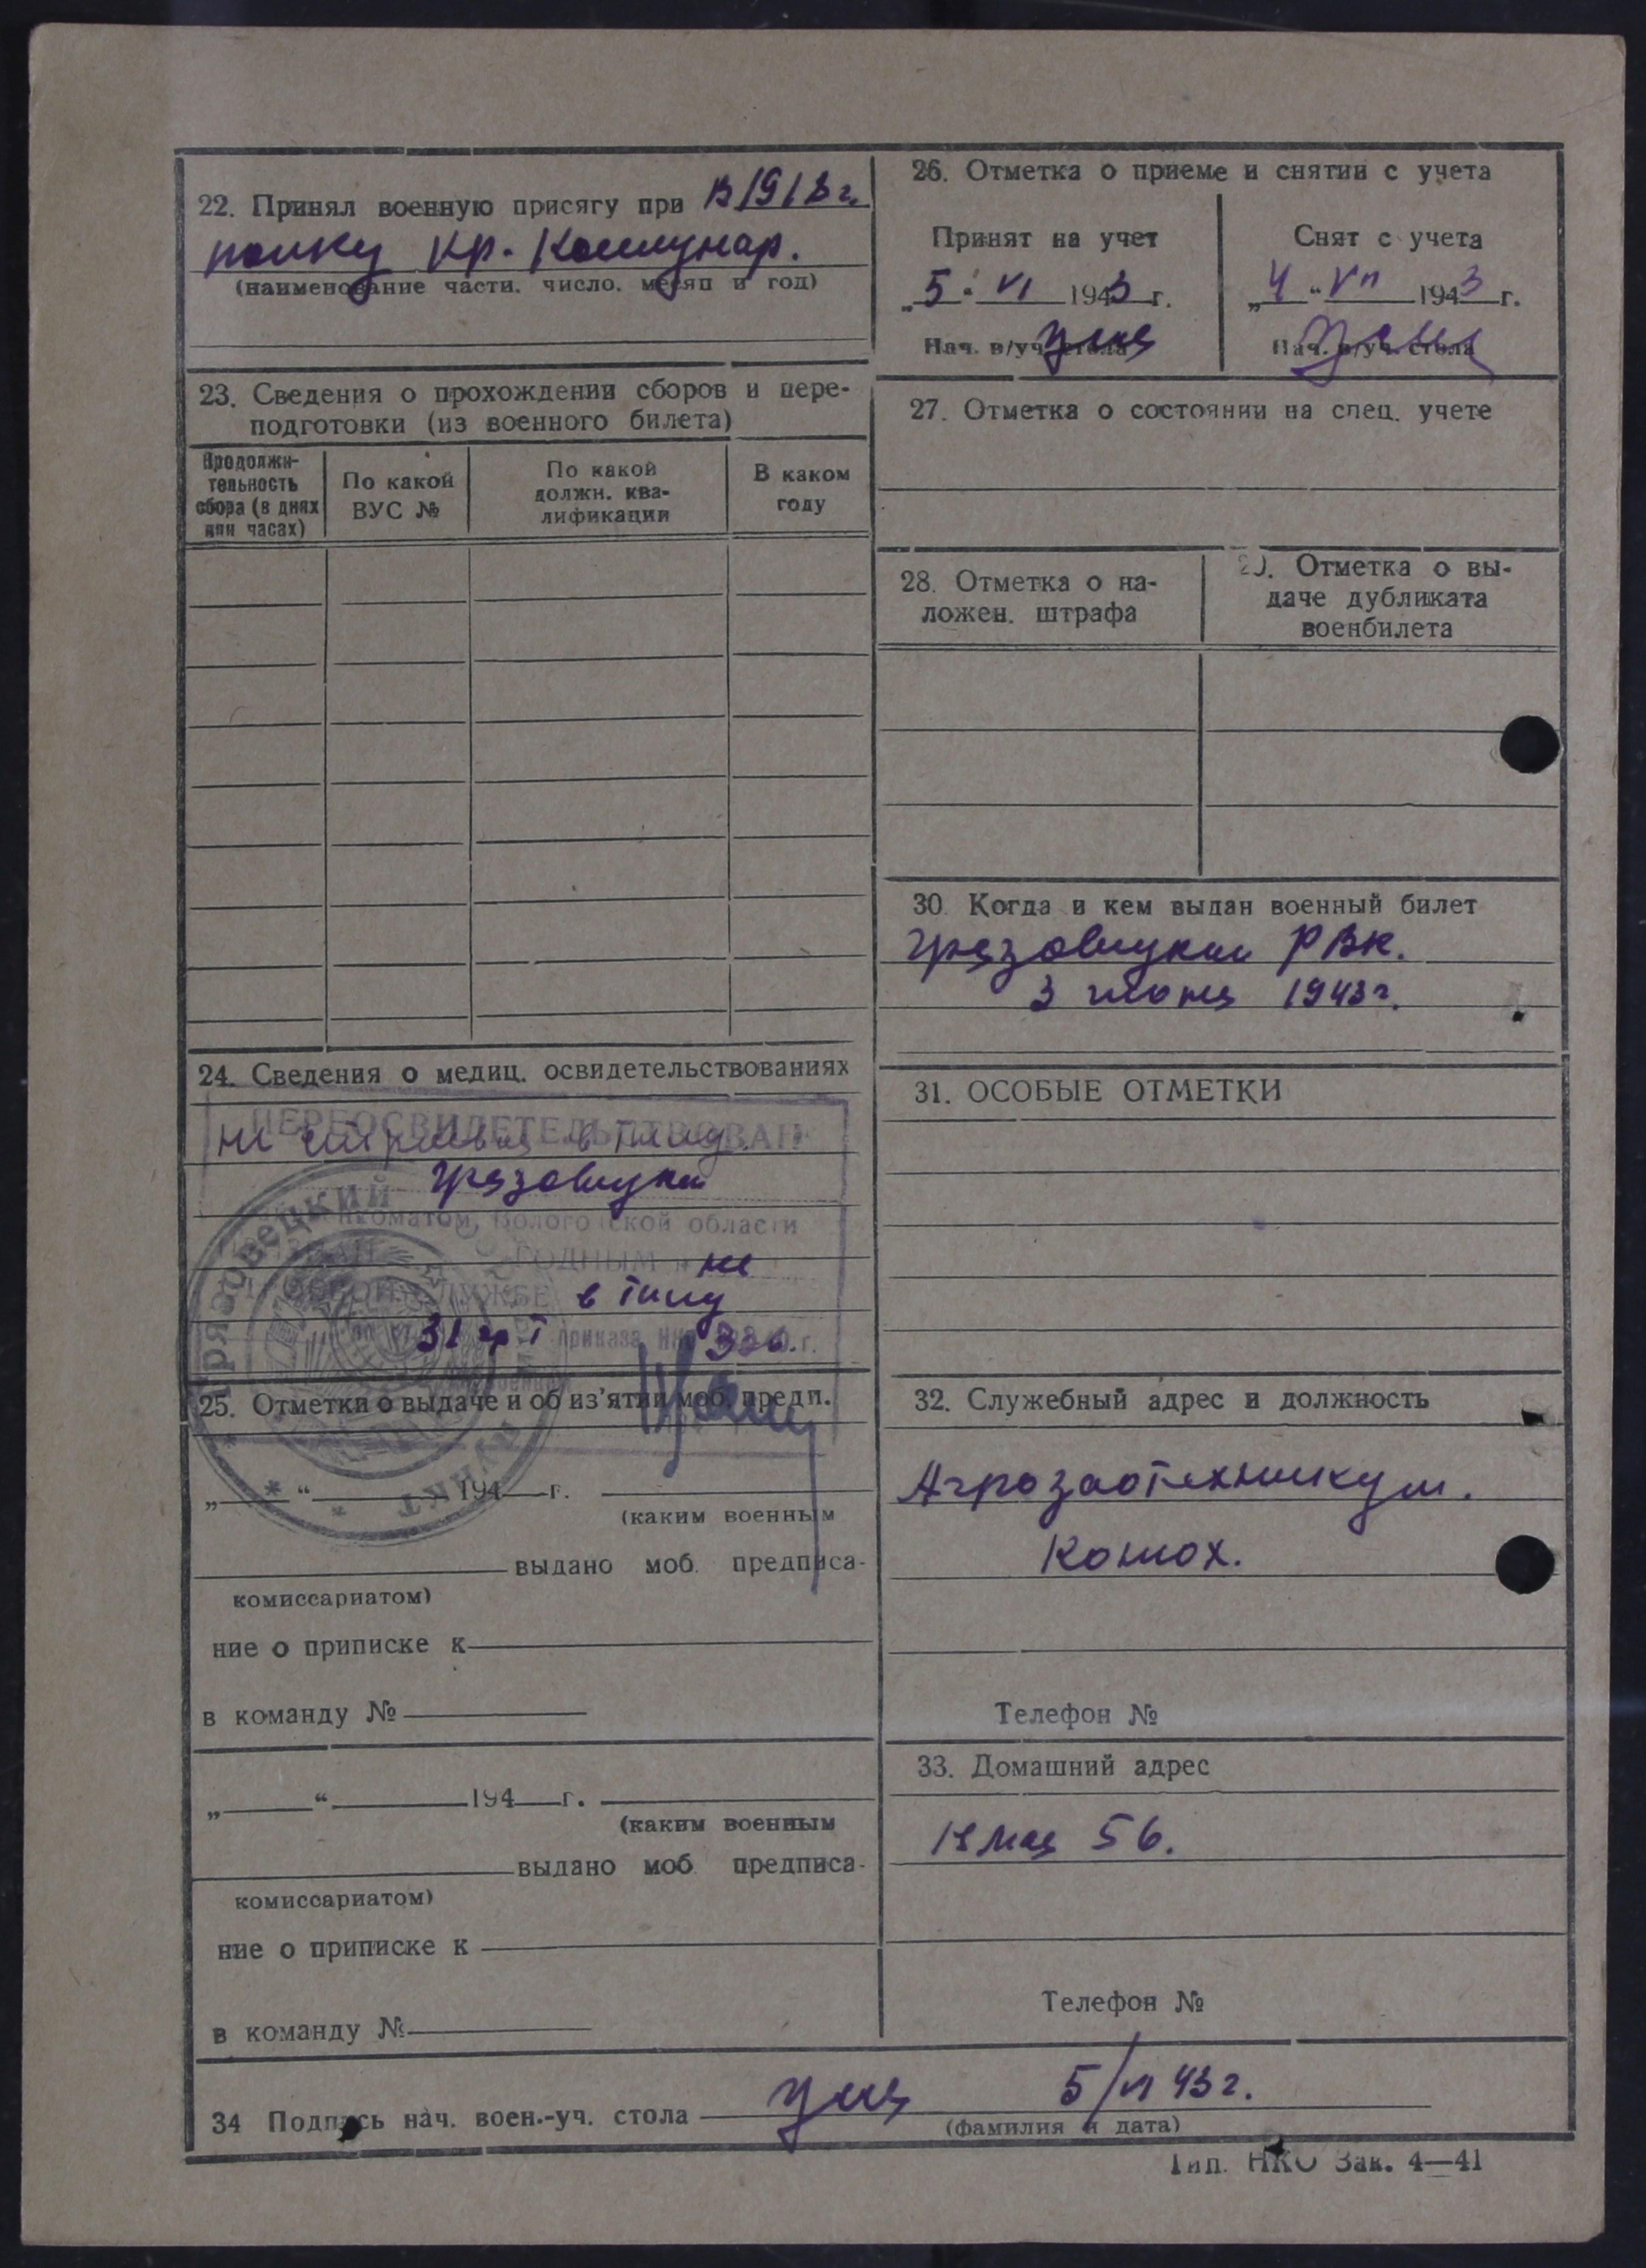 22. Принял военную присягу при в 1918 г.
полку Кр. Коммунар.
(наименование части, число, месяц и год)
23. Сведения о прохождении сборов и пере-
подготовки (из военного билета)
Продолжи-
тельность
сбора (в днях
или часах)
По какой
ВУС №
По какой
должн. ква-
лификации
В каком
году
24. Сведения о медиц. освидетельствованиях
ПЕРЕОСВИДЕТЕЛЬСТВОВАН
не
Грязовецки
области
ГОДНЫМ не
СЛУЖБЕ в тылу
31 гр I приказа 336. г.
25. Отметки о выдаче и об из'ятии моб. предп.
„ “ 194 г.
(каким военным
выдано моб. предписа-
комиссариатом)
ние о приписке к
в команду №
„ “ 194 г.
(каким военным
выдано моб. предписа-
комиссариатом)
ние о приписке к
в команду №
26. Отметка о приеме и снятии с учета
Принят на учет
„5“ VI 1943 г.
Нач. в/уч. стола
Снят с учета
„4“ VII 1943 г.
Нач. в/уч. стола
27. Отметка о состоянии на спец. учете
28. Отметка о на-
ложен. штрафа
29. Отметка о вы-
даче дубликата
военбилета
30. Когда и кем выдан военный билет
Грязовецким РВК.
3 июня 1943 г.
31. ОСОБЫЕ ОТМЕТКИ
32. Служебный адрес и должность
Агрозоотехникум.
Конюх.
Телефон №
33. Домашний адрес
1 Мая 56.
Телефон №
34 Подпись нач. воен.-уч. стола 5/VI 43 г.
(фамилия и дата)
Тип. НКО Зак. 4—41